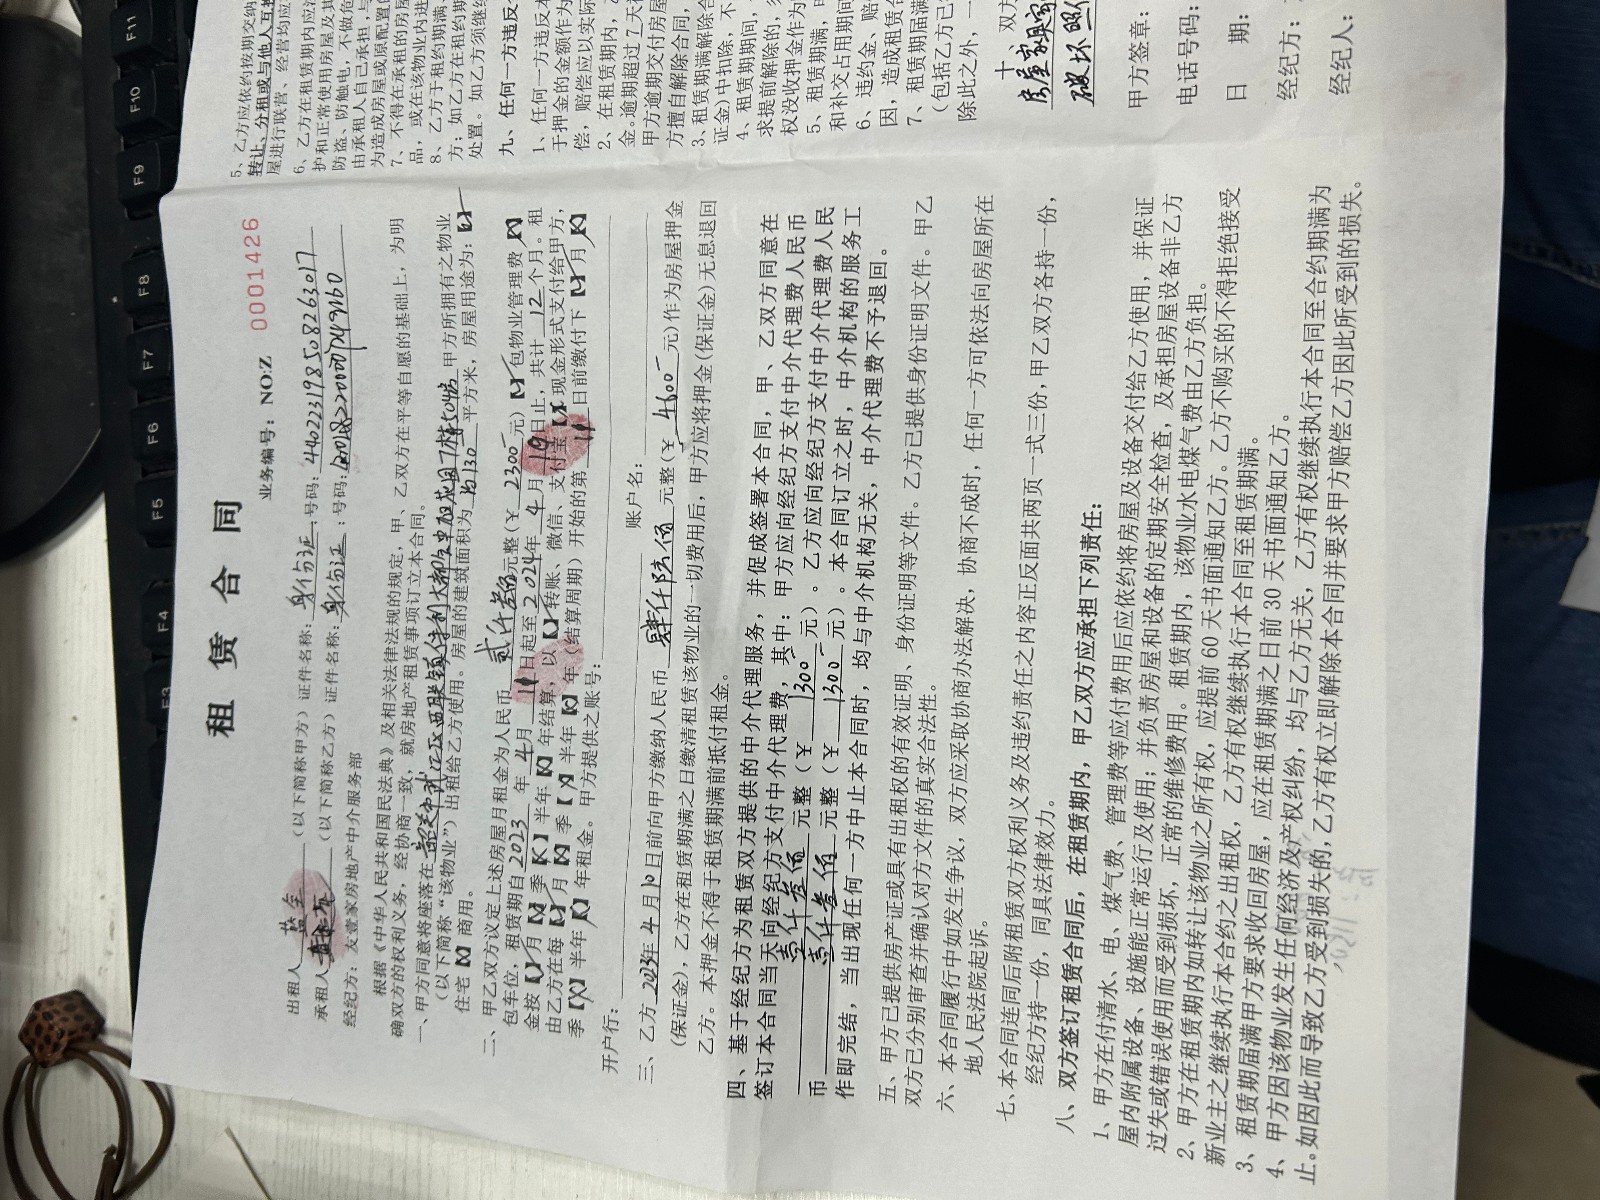 租 赁 合 同
业务编号：NO:Z 0001426
出租人 （以下简称甲方）证件名称：身份证 号码：440223198508263017
承租人 （以下简称乙方）证件名称：身份证 号码：
经纪方：友壹家房地产中介服务部
根据《中华人民共和国民法典》及相关法律法规的规定，甲、乙双方在平等自愿的基础上，为明
确双方的权利义务，经协商一致，就房地产租赁事项订立本合同。
一、甲方同意将座落在 甲方所拥有之物业
（以下简称“该物业”）出租给乙方使用。房屋的建筑面积为 130 平方米，房屋用途为：【✓】
住宅【X】商用。
二、甲乙双方议定上述房屋月租金为人民币 贰仟叁佰 元整（￥ 2300 元）【✓】包物业管理费【X】
包车位，租赁期自 2023 年 4 月 11 日起至 2024 年 4 月 10 日止，共计 12 个月。租
金按【✓】月【X】季【X】半年【X】年结算，以【✓】转账、微信、支付宝【X】现金形式支付给甲方，
由乙方在每【✓】月【X】季【X】半年【X】年（结算周期）开始的第 日前缴付下【✓】月【X】
季【X】半年【X】年租金。甲方提供之账号：
开户行： 账户名：
三、乙方 2023年 4 月 10 日前向甲方缴纳人民币 肆仟陆佰 元整（￥ 4600 元）作为房屋押金
（保证金），乙方在租赁期满之日缴清租赁该物业的一切费用后，甲方应将押金（保证金）无息退回
乙方。本押金不得于租赁期满前抵付租金。
四、基于经纪方为租赁双方提供的中介代理服务，并促成签署本合同，甲、乙双方同意在
签订本合同当天向经纪方支付中介代理费，其中：甲方应向经纪方支付中介代理费人民币
壹仟叁佰 元整（￥ 1300 元）。乙方应向经纪方支付中介代理费人民
币 壹仟叁佰 元整（￥ 1300 元）。本合同订立之时，中介机构的服务工
作即完结，当出现任何一方中止本合同时，均与中介机构无关，中介代理费不予退回。
五、甲方已提供房产证或具有出租权的有效证明、身份证明等文件。乙方已提供身份证明文件。甲乙
双方已分别审查并确认对方文件的真实合法性。
六、本合同履行中如发生争议，双方应采取协商办法解决，协商不成时，任何一方可依法向房屋所在
地人民法院起诉。
七、本合同连同后附租赁双方权利义务及违约责任之内容正反面共两页一式三份，甲乙双方各持一份，
经纪方持一份，同具法律效力。
八、双方签订租赁合同后，在租赁期内，甲乙双方应承担下列责任：
1、甲方在付清水、电、煤气费、管理费等应付费用后应依约将房屋及设备交付给乙方使用，并保证
屋内附属设备、设施能正常运行及使用；并负责房屋和设备的定期安全检查，及承担房屋设备非乙方
过失或错误使用而受到损坏，正常的维修费用。租赁期内，该物业水电煤气费由乙方负担。
2、甲方在租赁期内如转让该物业之所有权，应提前 60 天书面通知乙方。乙方不购买的不得拒绝接受
新业主之继续执行本合约之出租权，乙方有权继续执行本合同至租赁期满。
3、租赁期届满甲方要求收回房屋，应在租赁期满之日前 30 天书面通知乙方。
4、甲方因该物业发生任何经济及产权纠纷，均与乙方无关，乙方有权继续执行本合同至合约期满为
止。如因此而导致乙方受到损失的，乙方有权立即解除本合同并要求甲方赔偿乙方因此所受到的损失。
5、乙方应依约按期交纳
转让、分租或与他人互换
屋进行联营、经营均应
6、乙方在租赁期内应
护和正常使用房屋及其
防盗、防触电，不做危
由承租人自己承担，与
为造成房屋或原配置
7、不得在承租的房屋
品，或在该物业内进
8、乙方于租约期满
方；如乙方在租约期
处置。如乙方须继续
九、任何一方违反
1、任何一方违反本
于押金的金额作为
偿，赔偿应以实际
2、在租赁期内，
金。逾期超过 7 天
甲方逾期交付房屋
方擅自解除合同，
3、租赁期满解除合
证金）中扣除，不
4、租赁期期间，
求提前解除的，
权没收押金作为
5、租赁期满，
和补交占用期间
6、违约金、赔
因，造成租赁合
7、租赁期届满
（包括乙方已
除此之外，一
十、双方
房屋家具
破坏照
甲方签章：
电话号码：
日 期：
经纪方：
经纪人：
F3
F4
F5
F6
F7
F8
F9
F10
F11